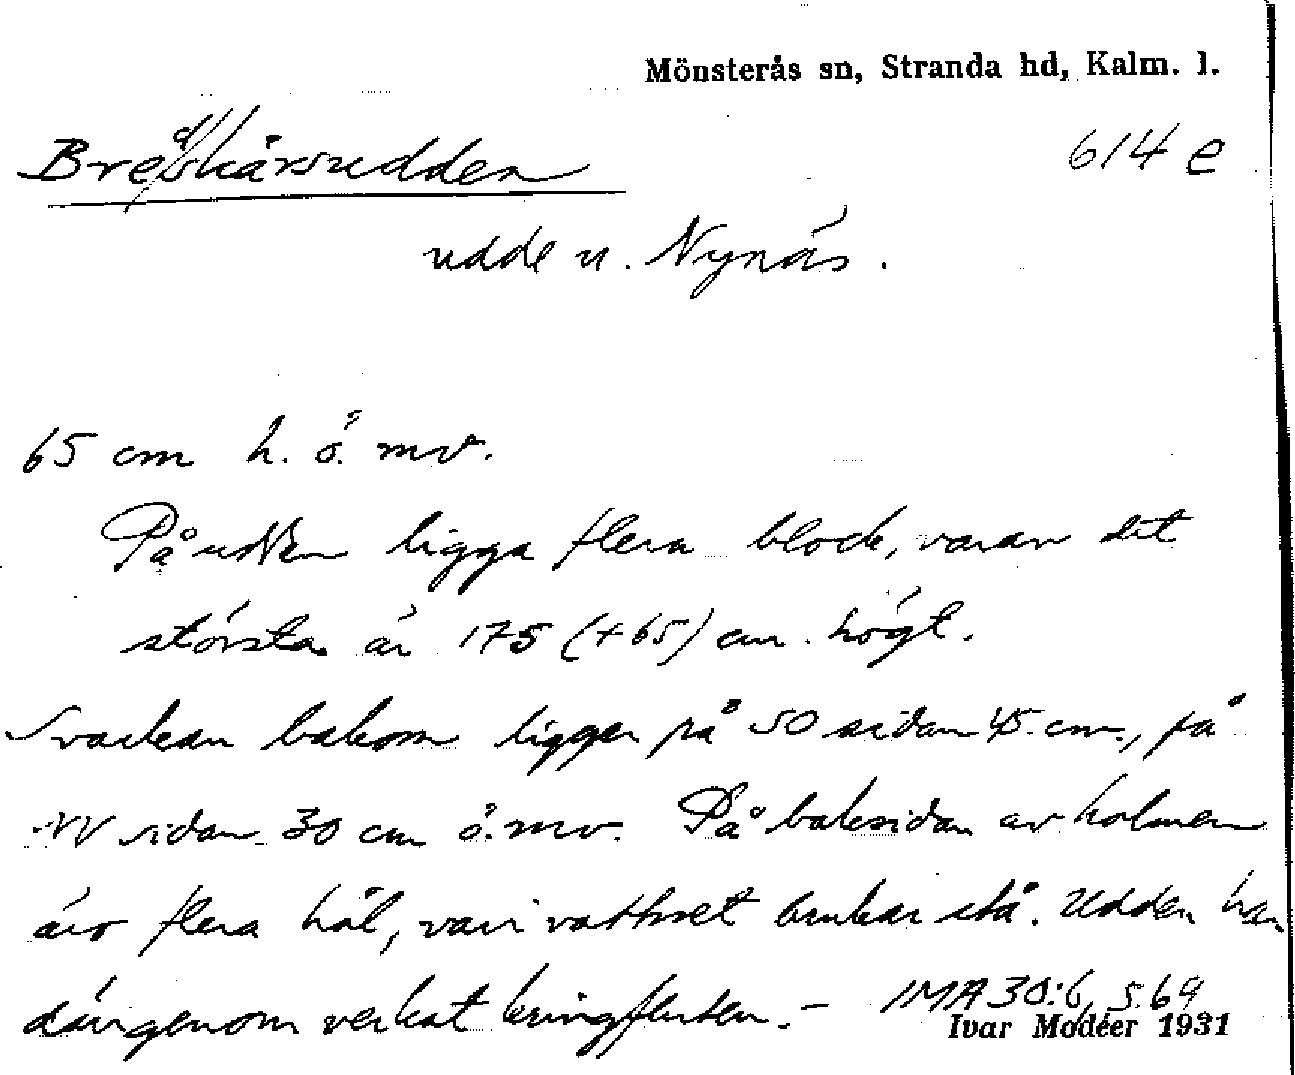 Mönsterås sn, Stranda hd, Kalm. l.
Bredskärsudden
614 e
udde n. Nynäs.
65 cm h. ö. mv.
På udden ligga flera block, varav det
största är 175 (+65) cm. högt.
Svackan bakom ligger på SO sidan 45 cm., på
NV sidan 30 cm ö. mv. På baksidan av holmen
äro flera hål, vari vattnet brukar stå. Udden har
därigenom verkat kringfluten. –
IMA 30:6, s. 69
Ivar Modéer 1931